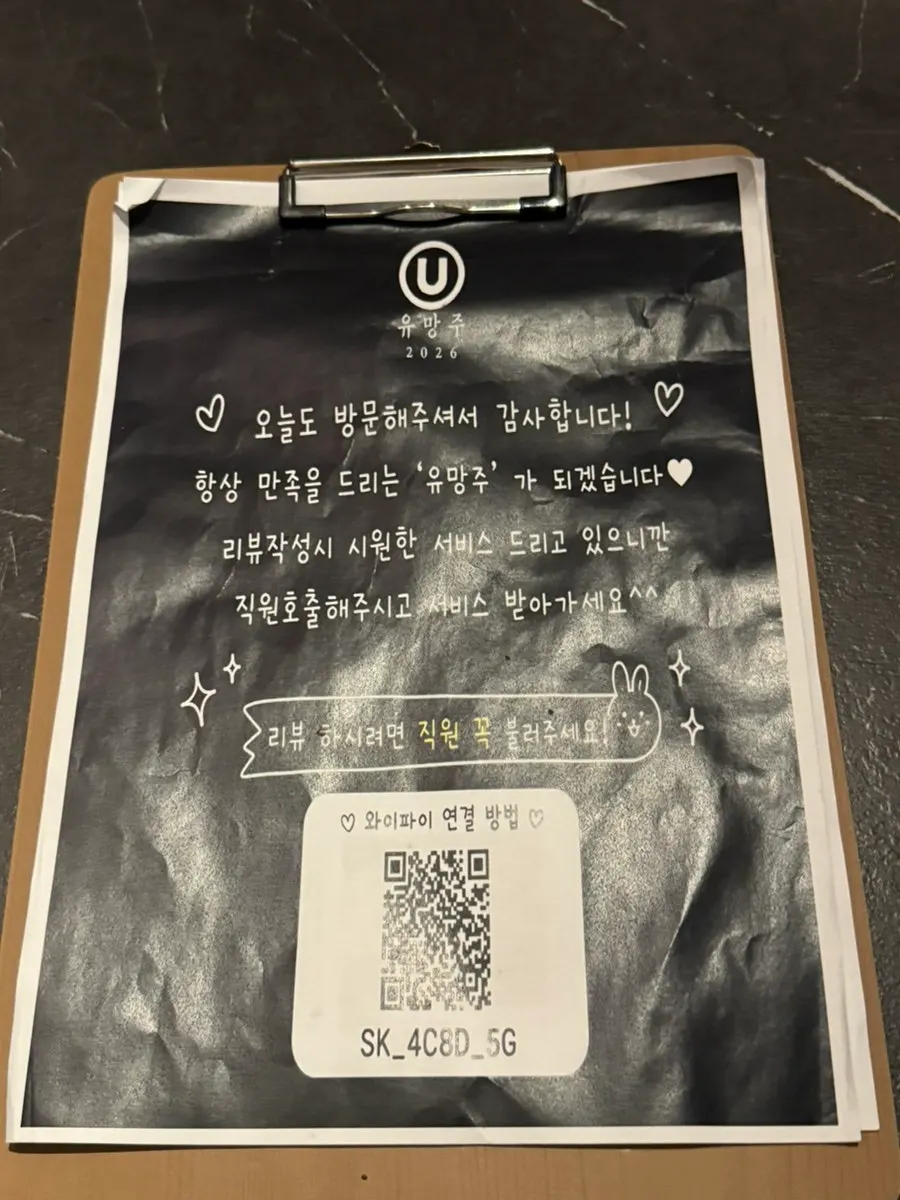 U
유망주
2026
♡ 오늘도 방문해주셔서 감사합니다! ♡
항상 만족을 드리는 '유망주' 가 되겠습니다♥
리뷰작성시 시원한 서비스 드리고 있으니깐
직원호출해주시고 서비스 받아가세요^^
리뷰 하시려면 직원 꼭 불러주세요!
♡ 와이파이 연결 방법 ♡
SK_4C8D_5G